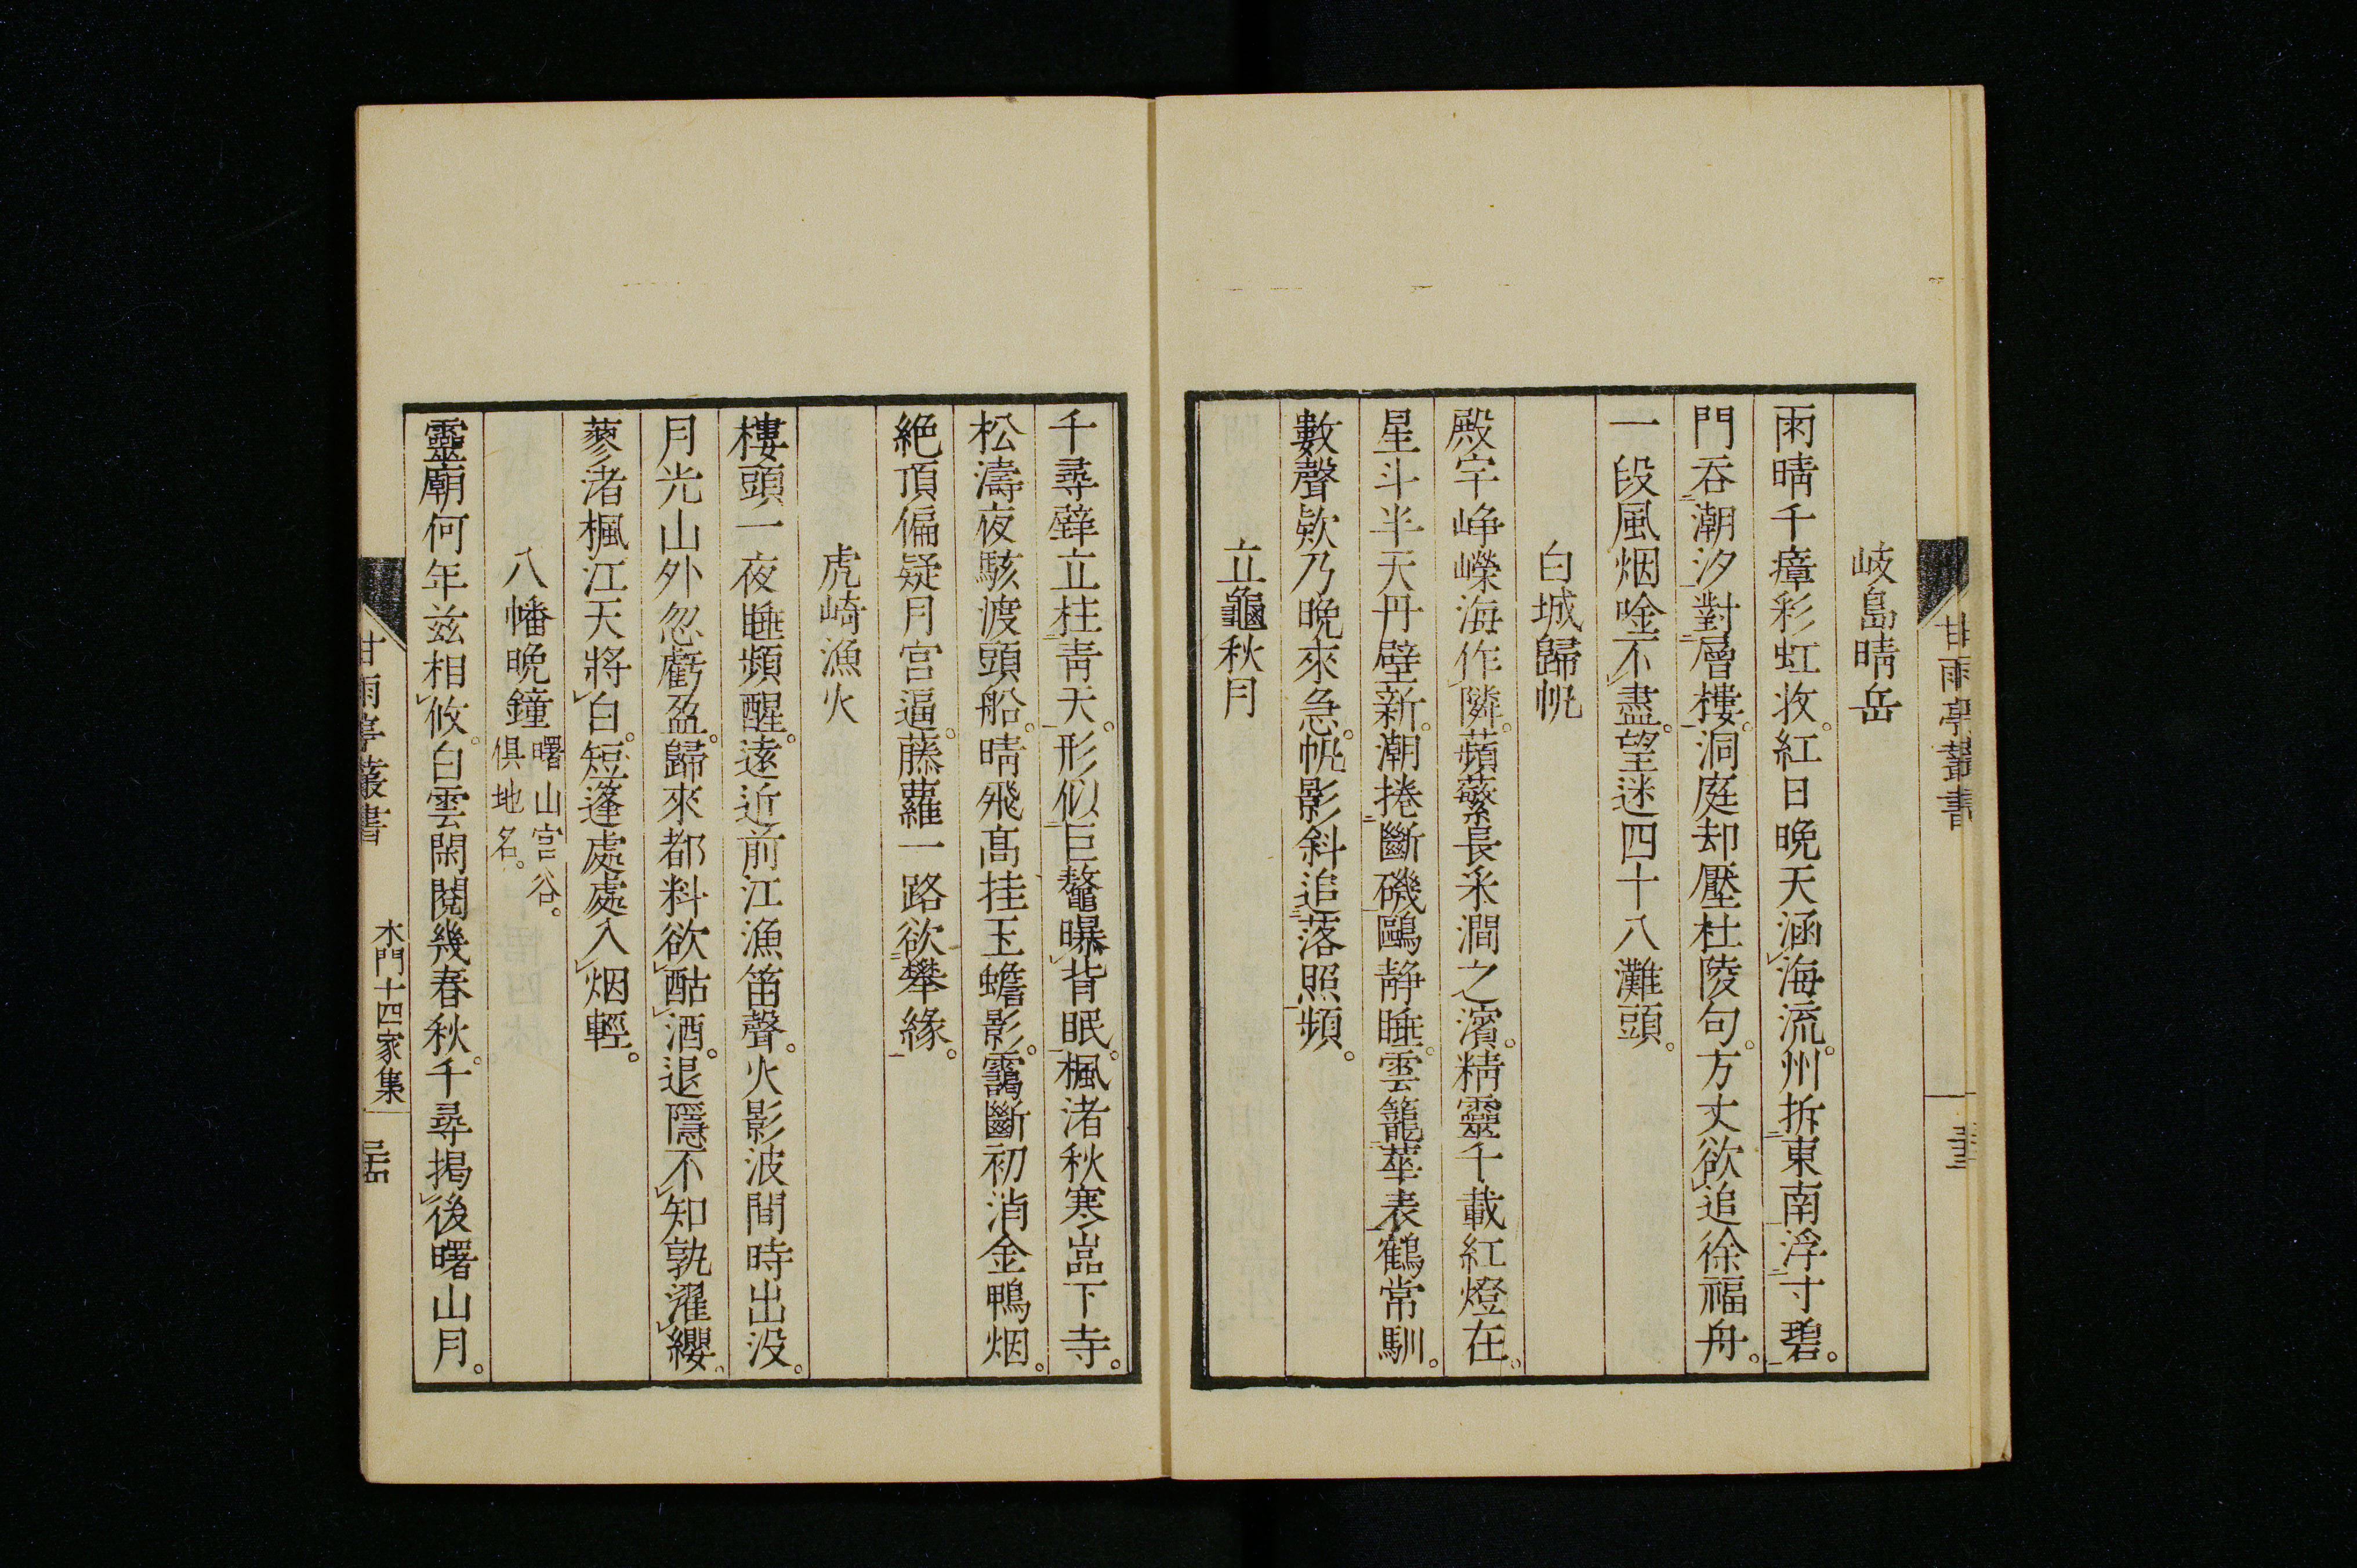 岐島晴岳
雨晴千瘴彩虹收。紅日晩天涵海流。州拆東南浮寸碧。
門吞潮汐對層樓。洞庭却壓杜陵句。方丈欲追徐福舟。
一段風烟唫不盡。望迷四十八灘頭。
白城歸帆
殿宇崢嶸海作隣。蘋蘩長采澗之濱。精靈千載紅燈在。
星斗半天丹壁新。潮捲斷磯鷗静睡。雲籠華表鶴常馴。
數聲欸乃晩來急。帆影斜追落照頻。
立龜秋月
甘雨亭叢書
千尋壁立柱靑天。形似巨鼇曝背眠。楓渚秋寒嵓下寺。
松濤夜駭渡頭船。晴飛髙挂玉蟾影。靄斷初消金鴨烟。
絶頂偏疑月宮逼。藤蘿一路欲攀緣。
虎崎漁火
樓頭一夜睡頻醒。遠近前江漁笛聲。火影波間時出没。
月光山外忽虧盈。歸來都料欲酤酒。退隱不知孰濯纓。
蓼渚楓江天將白。短篷處處入烟輕。
八幡晩鐘 曙山宮谷。俱地名。
靈廟何年玆相攸。白雲閑閱幾春秋。千尋揭後曙山月。
甘雨亭叢書 木門十四家集